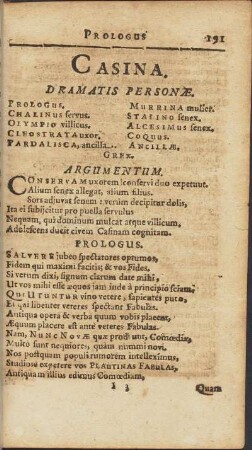 PROLOGUS 191
CASINA.
DRAMATIS PERSONÆ.
PROLOGUS. MURRINA mulier.
CHALINUS servus. STALINO senex.
OLYMPIO villicus. ALCESIMUS senex.
CLEOSTRATA uxor. COQUUS.
PARDALISCA, ancilla. ANCILLÆ.
GREX.
ARGUMENTUM.
CONSERVAM uxorem conservi duo expetunt.
Alium senex allegat, alium filius.
Sors adjuvat senem: verum decipitur dolis,
Ita ei subjicitur pro puella servulus
Nequam, qui dominum mulcat atque villicum,
Adolescens ducit civem Casinam cognitam.
PROLOGUS.
SALVERE jubeo spectatores optumos,
Fidem qui maximi facitis, & vos Fides.
Si verum dixi, signum clarum date mihi,
Ut vos mihi esse æquos jam inde à principio sciam,
QUI UTUNTUR vino vetere, sapientes puto,
Et qui libenter veteres spectant Fabulas.
Antiqua opera & verba quum vobis placent,
Æquum placere est ante veteres Fabulas.
Nam, NUNC NOVÆ quæ prodeunt, Comœdiæ,
Multo sunt nequiores, quam nummi novi.
Nos postquam populi rumorem intelleximus,
Studiose expetere vos PLAUTINAS FABULAS,
Antiquam illius edimus Comœdiam,
Quam